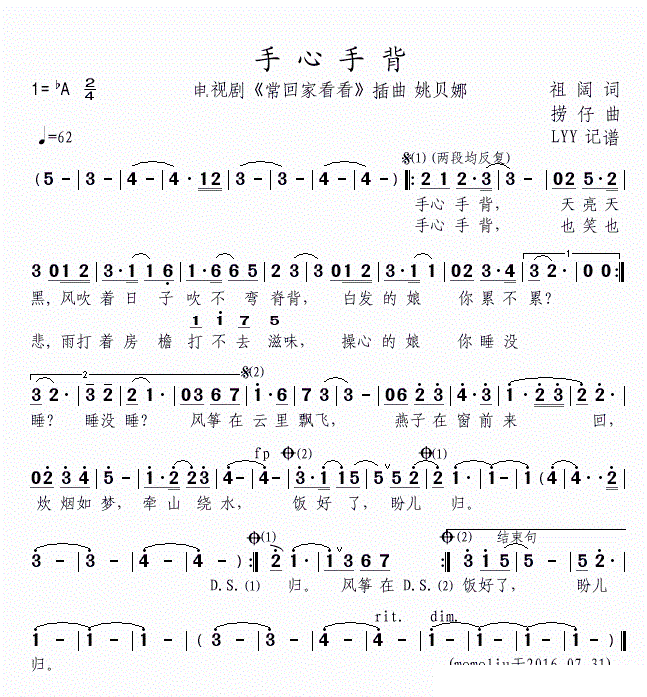 手心手背
1=♭A 2/4 电视剧《常回家看看》插曲 姚贝娜 祖阔 词
捞仔 曲
♩=62 LYY 记谱
(1) (两段均反复)
( 5 - | 3 - | 4 - | 4 · 1 2 | 3 - | 3 - | 4 - | 4 - ) ‖: 2 1 2 · 3 | 3 - | 0 2 5 · 2 |
手心 手 背， 天 亮 天
手心 手 背， 也 笑 也
3 0 1 2 | 3 · 1 1 6 | 1 · 6 6 5 | 2 3 · | 3 0 1 2 | 3 · 1 1 | 0 2 3 · 4 | 3 2 · | 0 0 :‖
黑，风吹 着 日 子 吹 不 弯 脊背， 白发 的 娘 你 累 不 累？
1 i 7 5
悲，雨打 着 房 檐 打 不 去 滋味， 操心 的 娘 你 睡 没
2 (2)
3 2 · | 3 2 | 2 1 · | 0 3 6 7 | i · 6 | 7 3 | 3 - | 0 6 2 3 | 4 · 3 | i · 2 3 | 2 · |
睡？ 睡没 睡？ 风筝 在 云 里 飘飞， 燕子 在 窗 前 来 回，
fp (2) (1)
0 2 3 4 | 5 - | i · 2 2 3 | 4 - | 4 - | 3 · i 1 5 | 5 5 2 | 2 i · | i - | i ( 4 · · 2 |
炊 烟如 梦， 牵 山 绕 水， 饭 好 了，盼儿 归。
(1) (2) 结束句
3 - | 3 - | 4 - | 4 - ) :‖ 2 i · | i 3 6 7 :‖ 3 i 5 | 5 - | 5 2 · |
D.S. (1) 归。 风筝 在 D.S. (2) 饭好了， 盼儿
rit. dim.
i - | i - | i - | i - | ( 3 - | 3 - | 4 - | 4 - | i - | i - | i - ) ‖
归。 (momoliu于2016.07.31)